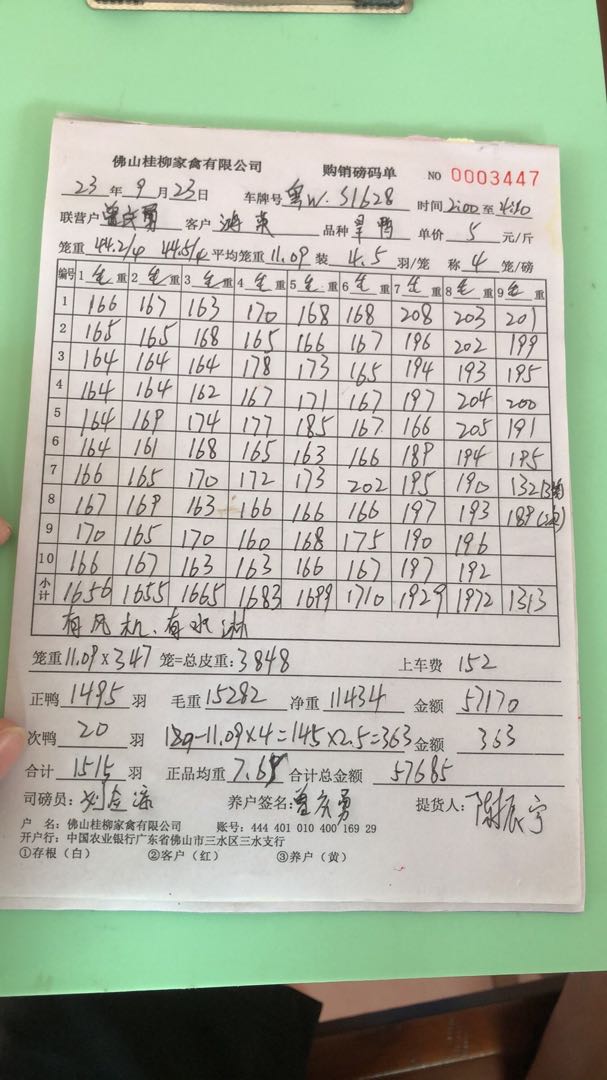 佛山桂柳家禽有限公司 购销磅码单 NO 0003447
23 年 9 月 23 日 车牌号 粤W·S1628 时间 2:00 至 4:10
联营户 曾庆勇 客户 品种 单价 5 元/斤
笼重 44.2/4 44.5/4 平均笼重 11.09 装 4.5 羽/笼 称 4 笼/磅
编号 1 毛 重 2 毛 重 3 毛 重 4 毛 重 5 毛 重 6 毛 重 7 毛 重 8 毛 重 9 毛 重
1 166 167 163 170 168 168 208 203 201
2 165 165 168 165 166 167 196 202 199
3 164 164 164 178 173 165 194 193 195
4 164 164 162 167 171 167 197 204 200
5 164 169 174 177 185 167 166 205 191
6 164 161 168 165 163 166 189 194 195
7 166 165 170 172 173 202 195 190 132
8 167 169 163 166 166 166 197 193 189
9 170 165 170 160 168 175 190 196
10 166 167 163 163 166 167 197 192
小计 1656 1655 1665 1683 1699 1710 1929 1972 1313
有风机、有水淋
笼重 11.09 × 347 笼=总皮重: 3848 上车费 152
正鸭 1495 羽 毛重 15282 净重 11434 金额 57170
次鸭 20 羽 189-11.09×4=145×2.5=363 金额 363
合计 1515 羽 正品均重 7.65 合计总金额 57685
司磅员: 养户签名: 曾庆勇 提货人: 陈振宇
户 名: 佛山桂柳家禽有限公司 账号: 444 401 010 400 169 29
开户行: 中国农业银行广东省佛山市三水区三水支行
①存根（白） ②客户（红） ③养户（黄）